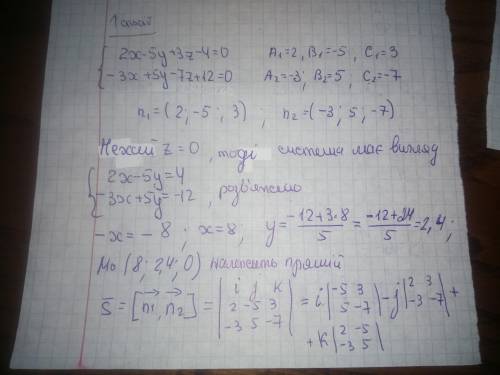 1 спосіб
{ 2x-5y+3z-4=0 A₁=2, B₁=-5, C₁=3
-3x+5y-7z+12=0 A₂=-3; B₂=5, C₂=-7
n₁=(2; -5; 3); n₂=(-3; 5; -7)
Нехай z=0, тоді система має вигляд
{ 2x-5y=4
-3x+5y=-12, розв'яжемо
-x=-8; x=8, y=(-12+3·8)/5=(-12+24)/5=2,4;
M₀(8; 2,4; 0) належить прямій
S̄=[n₁, n₂]=|i j k; 2 -5 3; -3 5 -7|=i|-5 3; 5 -7|-j|2 3; -3 -7|+
+k|2 -5; -3 5|